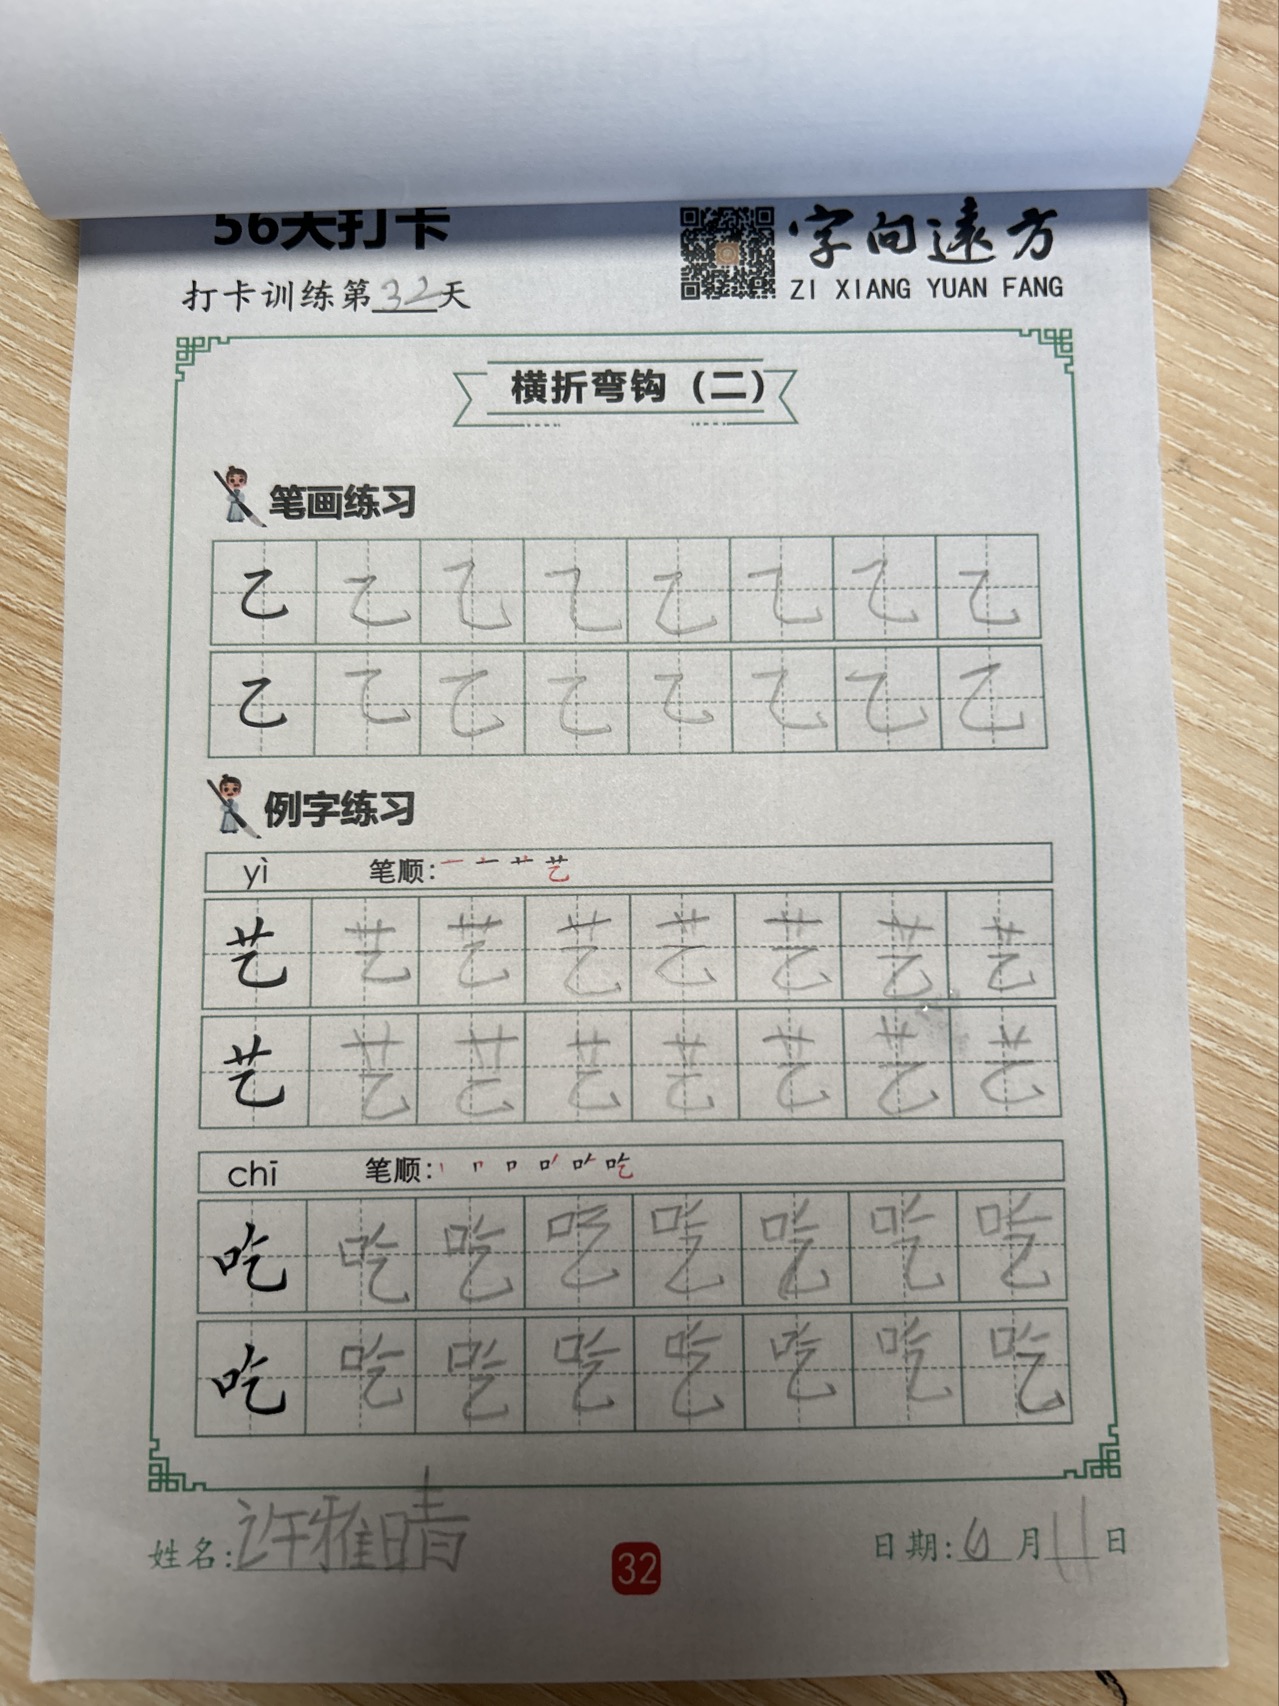 56天打卡
字向遠方
打卡训练第32天
ZI XIANG YUAN FANG
横折弯钩（二）
笔画练习
乙 乙 乙 乙 乙 乙 乙 乙
乙 乙 乙 乙 乙 乙 乙 乙
例字练习
yì 笔顺: 一 艹 艺
艺 艺 艺 艺 艺 艺 艺 艺
艺 艺 艺 艺 艺 艺 艺 艺
chī 笔顺: 丨 口 吃
吃 吃 吃 吃 吃 吃 吃 吃
吃 吃 吃 吃 吃 吃 吃 吃
姓名:许雅晴
32
日期:6月11日